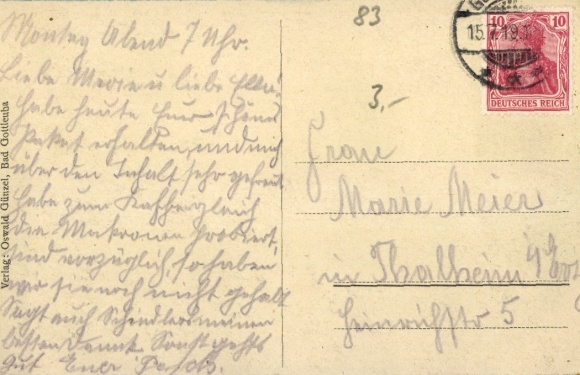 Montag Abend 7 Uhr.
Liebe Marie u liebe
habe heute Euer schönes
Paket erhalten, und mich
über den Inhalt sehr gefreut,
habe zum Kaffee gleich
die Makronen probiert,
sind vorzüglich, so haben
wir sie noch nicht gehabt
Sagt auch Schindlers meinen
besten Dank Sonst gehts
gut Euer
Verlag: Oswald Günzel, Bad Gottleuba
83
3,-
15.7.19.
10 10
DEUTSCHES REICH
Frau
Marie Meier
in Thalheim
Heinrichstr 5